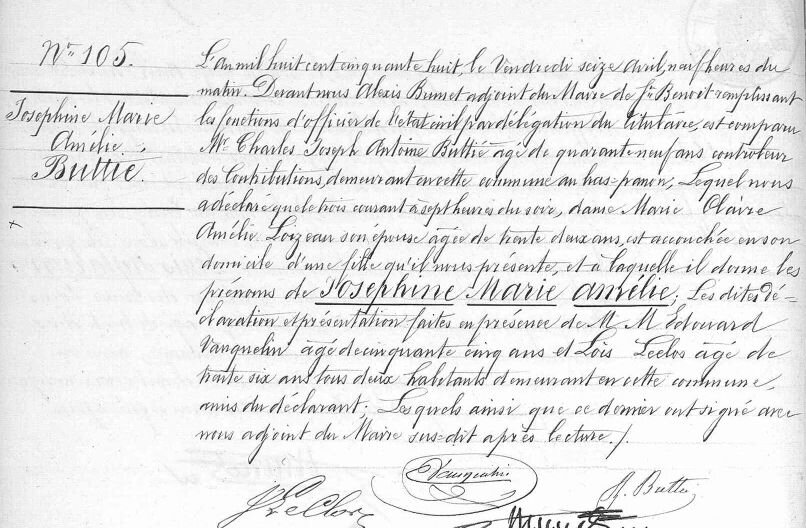 N° 105.
Josephine Marie
Amélie
Buttié.
L'an mil huit cent cinquante huit, le Vendredi seize Avril, neuf heures du
matin. Devant nous Alexis Brunet adjoint du Maire de St Benoit remplissant
les fonctions d'officier de l'état civil par délégation du titulaire, est comparu
Mr. Charles Joseph Antoine Buttié âgé de quarante neuf ans controleur
des Contributions, demeurant en cette commune au bas-panon; Lequel nous
a déclaré que le trois courant à sept heures du soir, dame Marie Claire
Amélie Loizeau son épouse âgée de trente deux ans, est accouchée en son
domicile d'une fille qu'il nous présente, et à laquelle il donne les
prénoms de Josephine Marie Amélie; Les dites dé=
claration et présentation faites en présence de M. M Edouard
Vauquelin âgé de cinquante cinq ans et Loïs Leclos âgé de
trente six ans tous deux habitants demeurant en cette commune,
amis du déclarant; Lesquels ainsi que ce dernier ont signé avec
nous adjoint du Maire sus-dit après lecture./.
Vauquelin
LeClos
Buttié